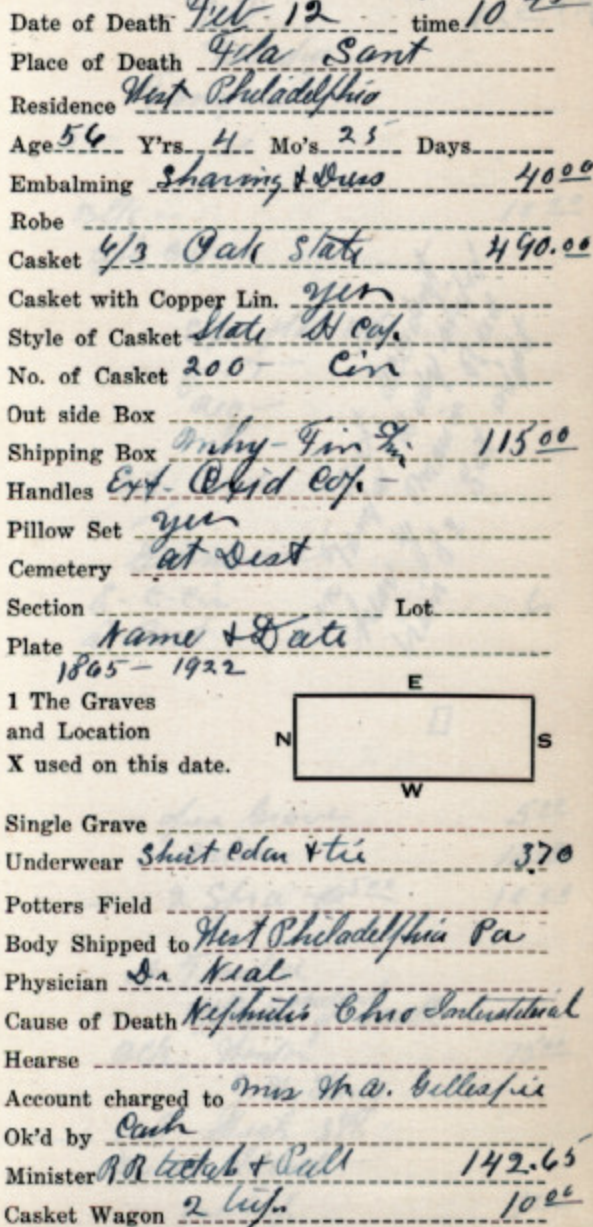 Date of Death Feb 12 time 10
Place of Death Fla Sant
Residence West Philadelphia
Age 56 Y'rs. 4 Mo's. 25 Days
Embalming Shaving & Dress 40 00
Robe
Casket 6/3 Oak State 490.00
Casket with Copper Lin. yes
Style of Casket State H Cop.
No. of Casket 200- Cin
Out side Box
Shipping Box 115 00
Handles Ext. Oxid Cop. -
Pillow Set yes
Cemetery at Dest
Section Lot
Plate Name & Date
1865 - 1922
E
1 The Graves
and Location
X used on this date.
N S
W
Single Grave
Underwear Shirt Colar & tie 3.70
Potters Field
Body Shipped to West Philadelphia Pa
Physician Dr Neal
Cause of Death Nephritis Chro Interstitial
Hearse
Account charged to Mrs W.A. Gillespie
Ok'd by Cash
Minister RR & 142.65
Casket Wagon 2 trips 10 00